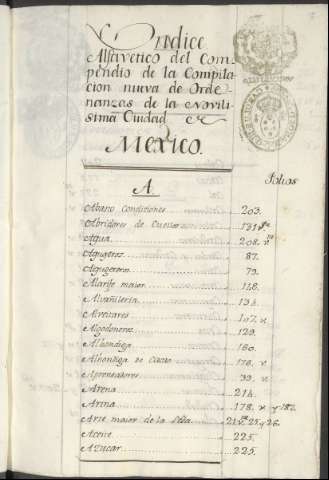 Yndice
Alfavetico del Com
pendio de la Compila
cion nueva de Orde
nanzas de la Novili
sima Ciudad de
Mexico.
Folios
A
Abasto Condiciones 203.
Abridores de Cuellos 131
Agua 208. v
Agujeros 87.
Agugeteros 73.
Alarife maior 118.
Alvañilería 134.
Alveitares 107. v
Algodoneros 129.
Alhondiga 160.
Alhondiga de Cacao 178. v
Aprensadores 39. v
Arena 214.
Arina 178. v y 182.
Arte maior de la Seda 21 v. 25. y 26.
Aceite 225.
Azucar 225.